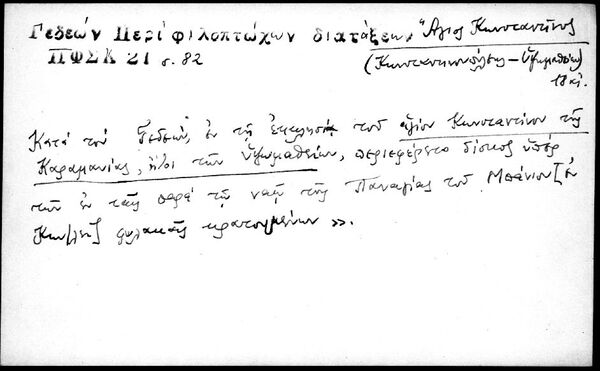 Γεδεών Περί φιλοπτώχων διατάξεων Ἅγιος Κωνσταντῖνος
ΠΦΣΚ 21 σ. 82 (Κωνσταντινούπολης – Ὑψωμαθεῖα)
18 αἰ.
Κατά τόν Γεδεών, ἐν τῇ ἐκκλησίᾳ τοῦ ἁγίου Κωνσταντίνου τῆς
Καραμανίας, ἤτοι τῶν Ὑψωμαθείων, περιεφέρετο δίσκος ὑπέρ
τῶν ἐν ταῖς παρά τῷ ναῷ τῆς Παναγίας τοῦ ἐν
φυλακαῖς κρατουμένων ».